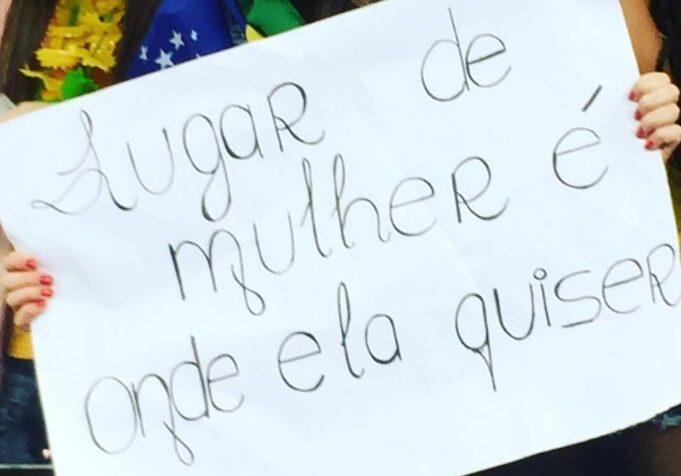 Lugar de
mulher é
onde ela quiser